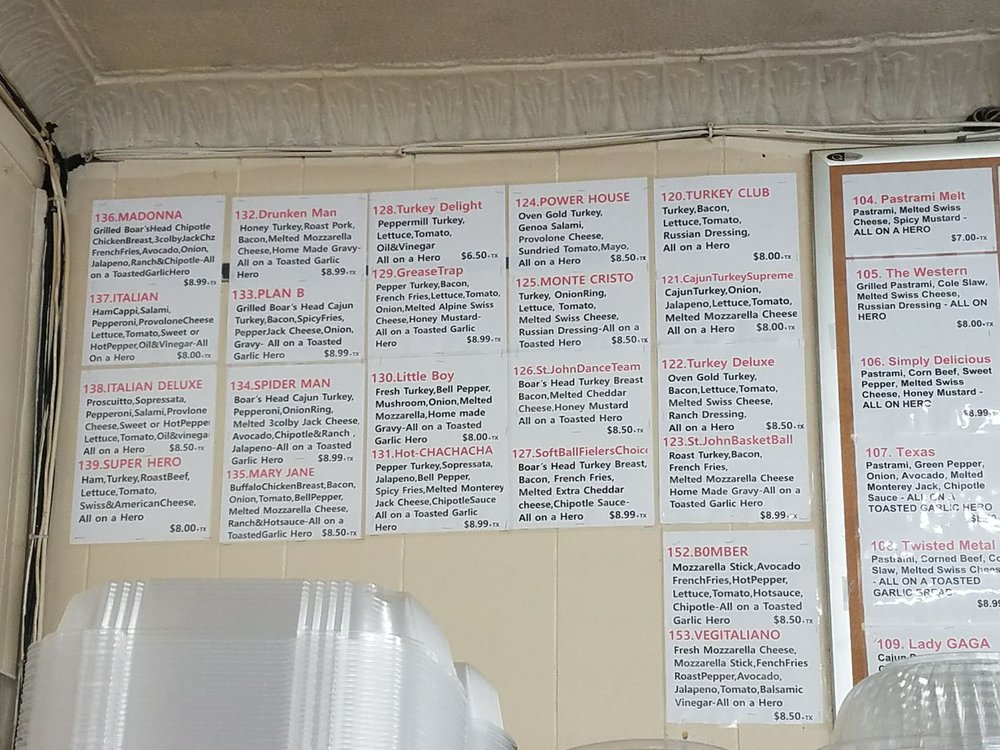 136.MADONNA
Grilled Boar'sHead Chipotle
ChickenBreast,3colbyJackChz
FrenchFries,Avocado,Onion,
Jalapeno,Ranch&Chipotle-All
on a ToastedGarlicHero
$8.99+TX
137.ITALIAN
HamCappi,Salami,
Pepperoni,ProvoloneCheese
Lettuce,Tomato,Sweet or
HotPepper,Oil&Vinegar-All
On a Hero $8.00+TX
138.ITALIAN DELUXE
Proscuitto,Sopressata,
Pepperoni,Salami,Provlone
Cheese,Sweet or HotPepper
Lettuce,Tomato,Oil&vinegar
All on a Hero $8.50+TX
139.SUPER HERO
Ham,Turkey,RoastBeef,
Lettuce,Tomato,
Swiss&AmericanCheese,
All on a Hero
$8.00+TX
132.Drunken Man
Honey Turkey,Roast Pork,
Bacon,Melted Mozzarella
Cheese,Home Made Gravy-
All on a Toasted Garlic
Hero $8.99+TX
133.PLAN B
Grilled Boar's Head Cajun
Turkey,Bacon,SpicyFries,
PepperJack Cheese,Onion,
Gravy- All on a Toasted
Garlic Hero $8.99+TX
134.SPIDER MAN
Boar's Head Cajun Turkey,
Pepperoni,OnionRing,
Melted 3colay Jack Cheese
Avocado,Chipotle&Ranch ,
Jalapeno-All on a Toasted
Garlic Hero $8.99+TX
135.MARY JANE
BuffaloChickenBreast,Bacon,
Onion,Tomato,BellPepper,
Melted Mozzarella Cheese,
Ranch&Hotsauce-All on a
ToastedGarlic Hero $8.50+TX
128.Turkey Delight
Peppermill Turkey,
Lettuce,Tomato,
Oil&Vinegar
All on a Hero $6.50+TX
129.GreaseTrap
Pepper Turkey,Bacon,
French Fries,Lettuce,Tomato,
Onion,Melted Alpine Swiss
Cheese,Honey Mustard-
All on a Toasted Garlic
Hero $8.99+TX
130.Little Boy
Fresh Turkey,Bell Pepper,
Mushroom,Onion,Melted
Mozzarella,Home made
Gravy-All on a Toasted
Garlic Hero $8.00+TX
131.Hot-CHACHACHA
Pepper Turkey,Sopressata,
Jalapeno,Bell Pepper,
Spicy Fries,Melted Monterey
Jack Cheese,ChipotleSauce
All on a Toasted Garlic
Hero $8.99+TX
124.POWER HOUSE
Oven Gold Turkey,
Genoa Salami,
Provolone Cheese,
Sundried Tomato,Mayo,
All on a Hero $8.50+TX
125.MONTE CRISTO
Turkey, OnionRing,
Lettuce, Tomato,
Melted Swiss Cheese,
Russian Dressing-All on a
Toasted Hero $8.50+TX
126.St.JohnDanceTeam
Boar's Head Turkey Breast
Bacon,Melted Cheddar
Cheese,Honey Mustard
All on a Hero
$8.50+TX
127.SoftBallFielersChoice
Boar's Head Turkey Breast,
Bacon, French Fries,
Melted Extra Cheddar
cheese,Chipotle Sauce-
All on a Hero $8.99+TX
120.TURKEY CLUB
Turkey,Bacon,
Lettuce,Tomato,
Russian Dressing,
All on a Hero
$8.00+TX
121.CajunTurkeySupreme
CajunTurkey,Onion,
Jalapeno,Lettuce,Tomato,
Melted Mozzarella Cheese
All on a Hero $8.00+TX
122.Turkey Deluxe
Oven Gold Turkey,
Bacon,Lettuce,Tomato,
Melted Swiss Cheese,
Ranch Dressing,
All on a Hero $8.50+TX
123.St.JohnBasketBall
Roast Turkey,Bacon,
French Fries,
Melted Mozzarella Cheese
Home Made Gravy-All on a
Toasted Garlic Hero
$8.99+TX
152.BOMBER
Mozzarella Stick,Avocado
FrenchFries,HotPepper,
Lettuce,Tomato,Hotsauce,
Chipotle-All on a Toasted
Garlic Hero $8.50+TX
153.VEGITALIANO
Fresh Mozzarella Cheese,
Mozzarella Stick,FenchFries
RoastPepper,Avocado,
Jalapeno,Tomato,Balsamic
Vinegar-All on a Hero
$8.50+TX
104. Pastrami Melt
Pastrami, Melted Swiss
Cheese, Spicy Mustard -
ALL ON A HERO
$7.00+TX
105. The Western
Grilled Pastrami, Cole Slaw,
Melted Swiss Cheese,
Russian Dressing - ALL ON
HERO
$8.00+TX
106. Simply Delicious
Pastrami, Corn Beef, Sweet
Pepper, Melted Swiss
Cheese, Honey Mustard -
ALL ON HERO
$8.99+TX
107. Texas
Pastrami, Green Pepper,
Onion, Avocado, Melted
Monterey Jack, Chipotle
Sauce - ALL ON A
TOASTED GARLIC HERO
108. Twisted Metal
Pastrami, Corned Beef,
Slaw, Melted Swiss Cheese
- ALL ON A TOASTED
GARLIC BREAD
$8.99
109. Lady GAGA